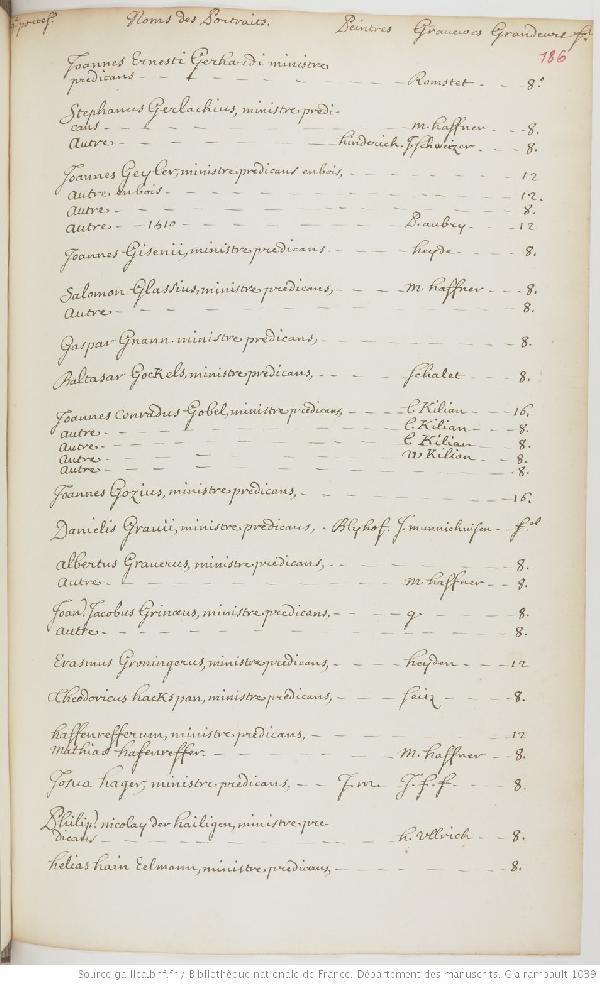 Noms des Portraits. Peintres Graveurs Grandeurs
186
Joannes Ernesti Gerhardi ministre
predicans - - - Romstet - - 8.
Stephanus Gerlachius, ministre predi-
cans - - - m. haffner - - 8.
Autre - - - hinderich. J. schweizer - - 8.
Joannes Geyler, ministre predicans en bois, - - 12
autre en bois - - - 12.
autre - - - 8.
autre - - 1510 - - - P. aubry - - 12
Joannes Gisenii, ministre predicans - - - heyde - - 8.
Salomon Glassius, ministre predicans, - - - m. haffner - - 8.
autre - - - 8.
Gaspar Gnann ministre predicans, - - - 8.
Baltasar Gockels, ministre predicans, - - - schalet - - 8.
Joannes Conradus Gobel, ministre predicans, - - - C. Kilian - - 16.
autre - - - C. Kilian - - 8.
autre - - - C. Kilian - - 8.
autre - - - W Kilian - - 8.
autre - - - 8.
Joannes Gozius, ministre predicans, - - - 16.
Danielis Gravii, ministre predicans, - Blyhof. J. munnickuisen - - fol
albertus Graverus, ministre predicans, - - - 8.
Autre - - - m. haffner - - 8.
Joan. Jacobus Grinœus, ministre predicans, - - - g - - 8.
autre - - - 8.
Erasmus Groningerus, ministre predicans, - - - heyden - - 12
Theodoricus hackspan, ministre predicans, - - - seitz - - 8.
haffenrefferum, ministre predicans, - - - 12
Mathias hafenreffer - - - M. haffner - - 8.
Josua hager, ministre predicans, - - J. m. J. f. f - - 8.
Philip. nicolay der hailigen, ministre pre-
dicans - - - h. Ullrich - - 8.
helias hain Eelmann, ministre predicans, - - - 8.
Source gallica.bnf.fr / Bibliothèque nationale de France. Département des manuscrits. Clairambault 1039